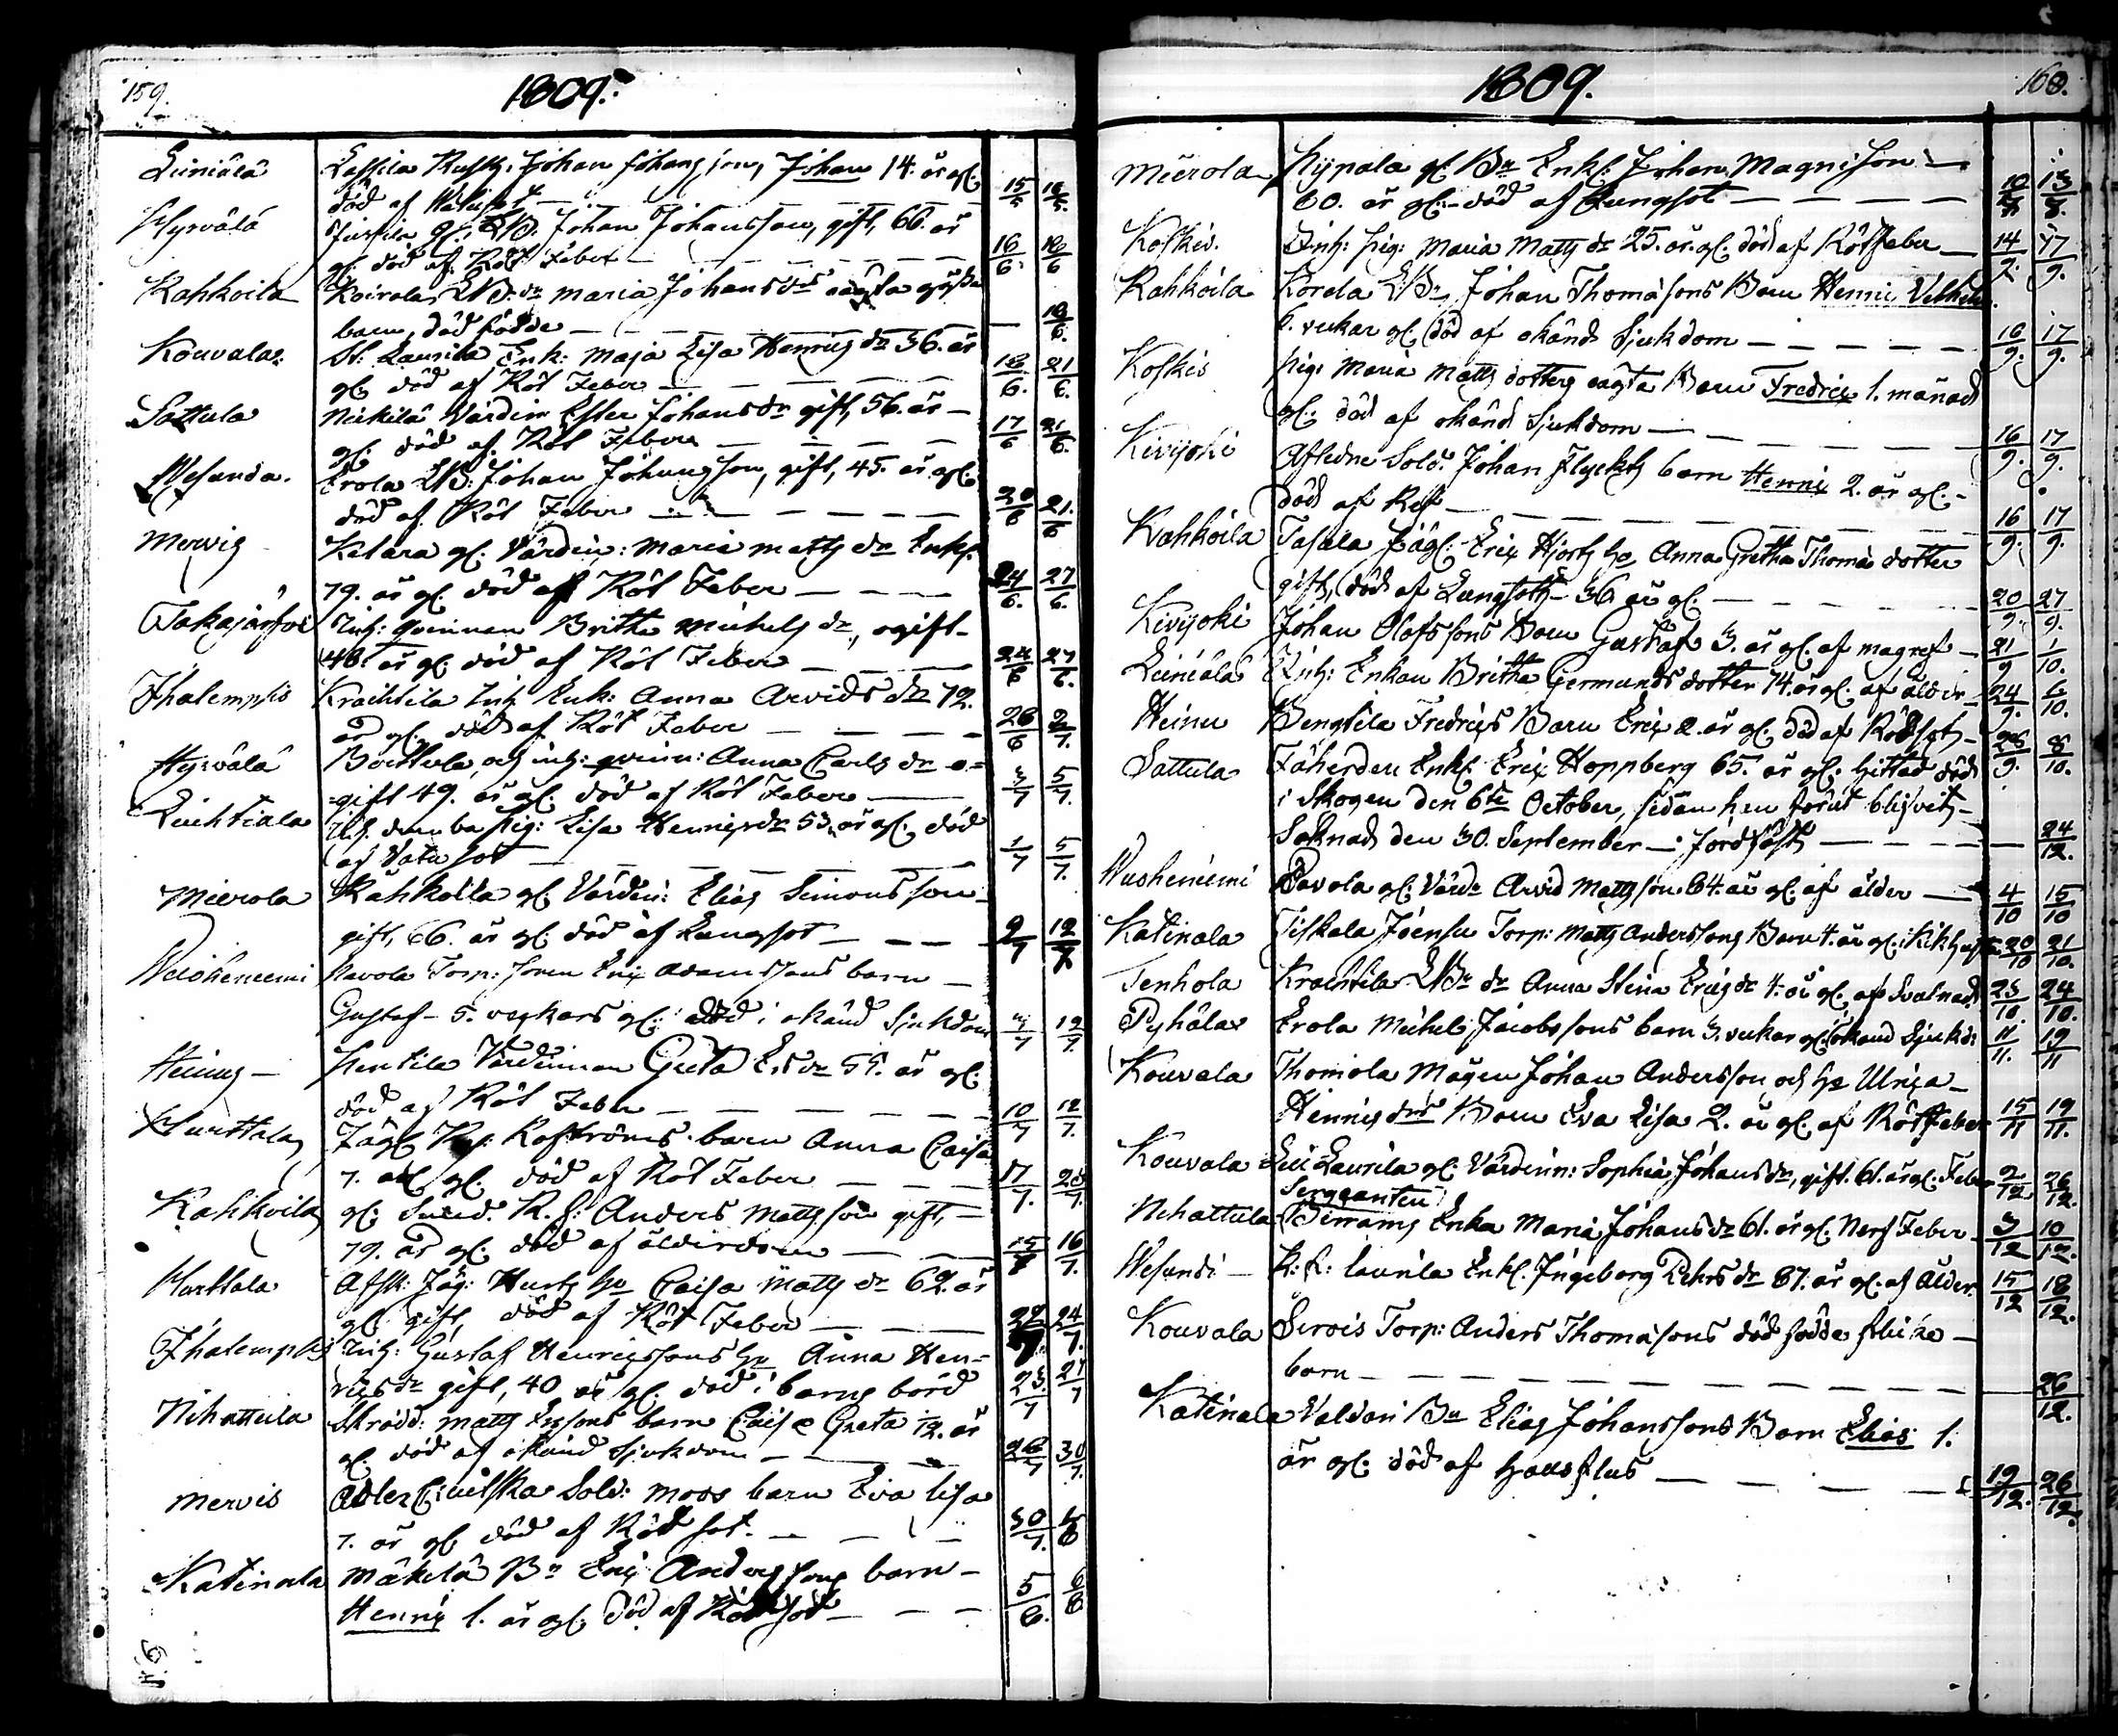 159.
1809.
Leiniälä Lassila Rusth: Johan Johansson, Johan 14. år gl.
död af 15/6 18/6.
Hyrvälä Jussila gl. Johan Johansson, gift, 66. år
gl. död af Röt Feber 16/6. 18/6
Kahkoila Koirola dr Maria Johansdrs oägta
barn, död födde 18/6.
Kouvala Laurila Enk: Maja Lisa Henrics dr 36. år
gl. död af Röt Feber 18/6. 21/6.
Sattula Nickilä Värdin Ester Johansdr gift, 56. år
gl. död af Röt Feber 17/6 21/6.
Wesunda. Erola Johan Johansson, gift, 45. år gl.
död af Röt Feber 20/6 21./6
Mervis Kelara gl. Värdin: Maria Matts dr Enk:
79. år gl. död af Röt Feber 24/6. 27/6.
Takajärfvi Inh: qvinnan Britta Michels dr, ogift
48. år gl. död af Röt Feber 24/6 27/6.
Ihalempis Krachtila Inh: Enk: Anna Arvids dr 72.
år gl. död af Röt Feber 26/6 2/7.
Hyrvälä inh: qvinn: Anna Carls dr o=
gift 49. år gl. död af Röt Feber 3/7 5/7.
Luihtiala pig: Lisa Henricsdr 53. år gl. död
af Vatu sot 1/7 5/7.
Mierola Kahkoila gl. Värdin: Elias Simonsson
gift, 66. år gl. död af Lungsot 9/7 12/7.
Wuoheniemi Pavola Torp: Sonen Eric Adamssons barn
Gustaf 5. veckors gl. död i okänd Sjukdom 12/7.
Heinus Pentila Värdinnan Greta Ersdr 55. år gl.
död af Röt Feber 10/7 12/7.
Hurttala Jäg: Roströms barn Anna Caisa
7. år gl. död af Röt Feber 17/7. 20/7.
Kahkoila gl: Anders Mattsson gift,
79. år gl. död af ålderdom 15/7 16/7.
Hurttala Afsk: Jäg: Hurts hu Caisa Matts dr 62. år
gl. gift, död af Röt Feber 24/7.
Ihalempis Inh: Gustaf Henricssons hu Anna Hen=
rics dr gift, 40 år gl. död i barns börd 23/7 27/7
Nihattula Skrädd: Matts Erssons barn Caisa Greta 12. år
gl. död af okänd sjukdom 26/7 30/7.
Mervis Adler Sold: Moos barn Eva Lisa
7. år gl. död af Röd sot. 30/7.
Katinala Mäkelä Bn Eric Anderssons barn
Henric 1. år gl. död af Rödsot 5/8. 6/8
1809.
160.
Mierola Hypala gl. Bn Enkl: Johan Magnisson
60. år gl. död af Lungsot 10/8 13/8.
Koskis. Inh: pig: Maria Matts dr 25. år. gl. död af Röt feber 14/9. 17/9.
Kahkoila Korela Bn Johan Thomassons Barn Henric Vilhelm
6. vickor gl. död af okänd Sjukdom 16/9. 17/9.
Koskis pig: Maria Matts dotters oägta Barn Fredric 1. månad
gl. död af okänd Sjukdom 16/9. 17/9.
Kivijoki Afledne Sold: Johan Flyckts barn Henric 2. år gl.
död af Ref 16/9. 17/9.
Kahkoila Tasala Jägl: Eric Hjorts hu Anna Gretha Thomä dotter
gift, död af Lungsot 36 år gl. 20/9. 27/9.
Kivijoki Johan Olofssons Barn Gustaf 3. år gl. af magref 21/9 1/10.
Leiniälä Inh: Enkan Britha Germunds dotter 74. år gl. af ålder 24/9. 6/10.
Heinu Bengtila Fredrics Barn Eric 2. år gl. död af Rödsot 26/9. 8/10.
Sattula Fäherden Enkl: Eric Hoppberg 65. år gl. hittad död
i Skogen den 6te October, sedan han förut blifvit
Saknad den 30. September, jordfäst 24/12.
Wuoheniemi Pavola gl: Värd: Arvid Mattsson 64. år gl. af ålder 4/10 15/10
Katinala Tiskala Joensu Torp: Matts Anderssons Barn 4. år gl. Kikhosta 20/10 21/10.
Tenhola Krachtila dr Anna Stina Ericsdr 4. år gl. af Svulnad 23/10 24/10.
Pyhälä Erola Michel Jacobssons barn 3. veckor gl. okänd Sjukd: 11/11. 19/11
Kouvala Thomola Mågen Johan Andersson och hu Ulrica
Henrics drs Barn Eva Lisa 2. år gl. af Rötfeber 15/11 19/11.
Kouvala Laurila gl. Värdinn: Sophia Johansdr, gift. 61. år gl. Feber 2/12 26/12.
Sergeanten
Nihattula Birrams Enka Maria Johansdr 61. år gl. Nerf Feber 3/12 10/12.
Wesundi K: k: Laurila Enkl. Ingeborg Pehrsdr 87. år gl. af Ålder 15/12 18/12.
Kouvala Serois Torp: Anders Thomassons död födde flicke
barn 26/12.
Katinala Valdari Bn Elias Johanssons Barn Elias 1.
år gl. död af halsflus 19/12. 26/12.